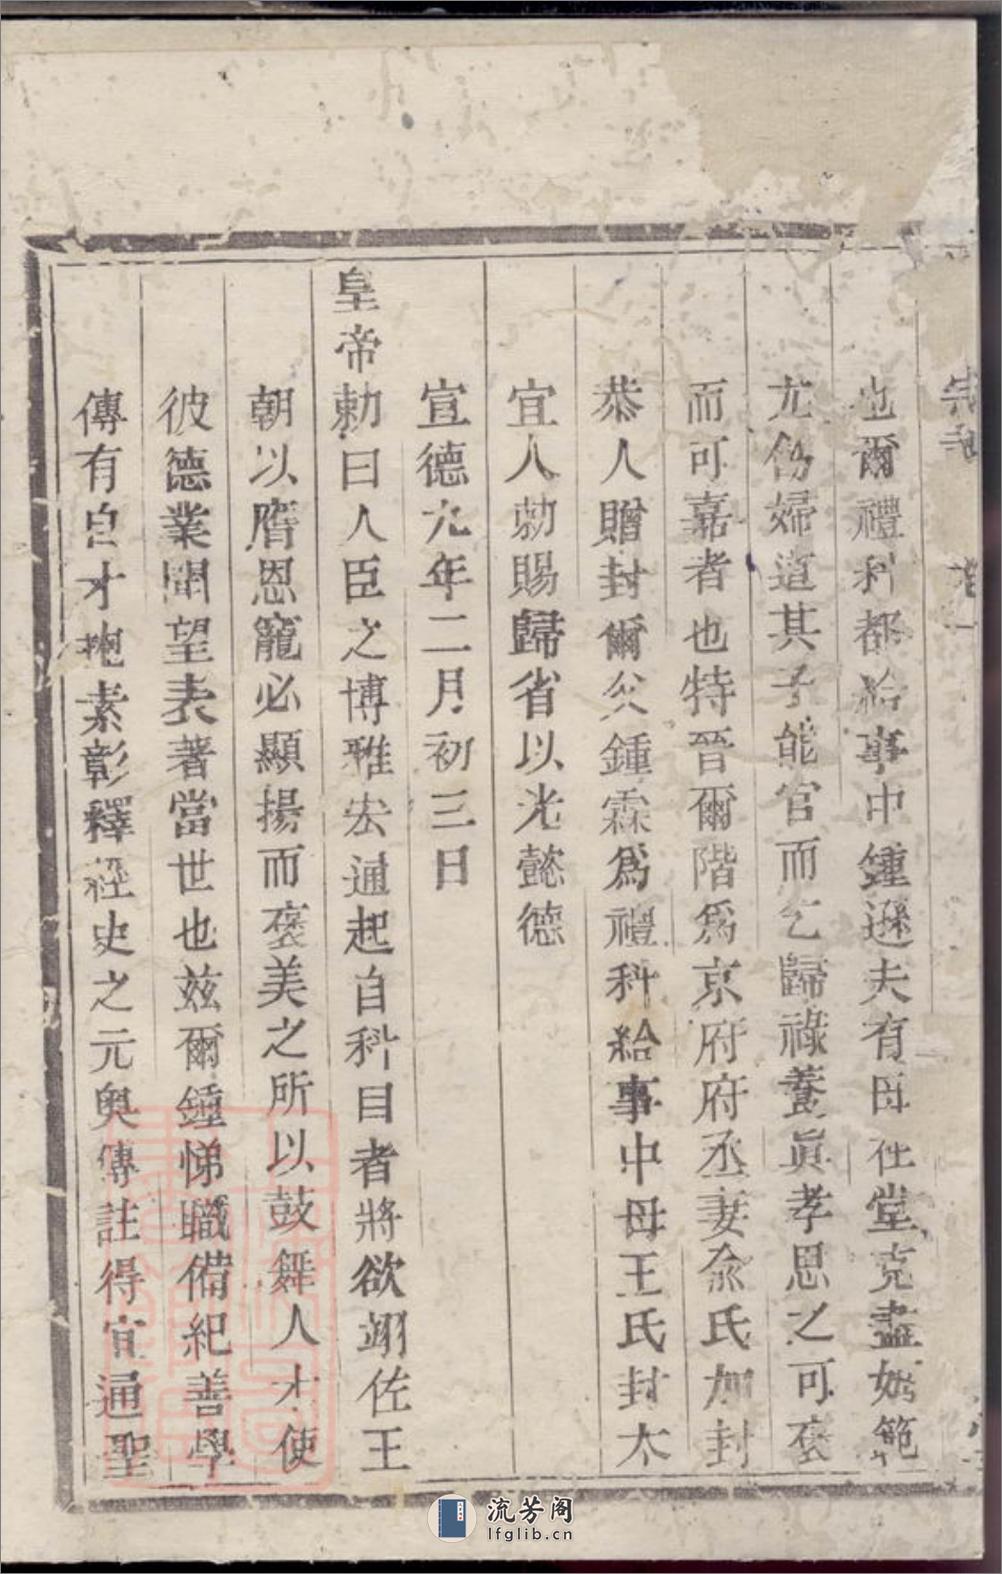 也爾禮科都給事中鍾遜夫有母在堂克盡姆範
尤傷婦道其子能官而乞歸祿養眞孝思之可褒
而可嘉者也特晉爾階爲京府府丞妻兪氏加封
恭人贈封爾父鍾霖爲禮科給事中母王氏封太
宜人勅賜歸省以光懿德
宣德九年二月初三日
皇帝勅曰人臣之博雅宏通起自科目者將欲翊佐王
朝以膺恩寵必顯揚而褒美之所以鼓舞人才使
彼德業聞望表著當世也玆爾鍾悌職備紀善學
傳有自才抱素彰釋經史之元奥傳註得宜通聖
流芳阁
lfglib.cn